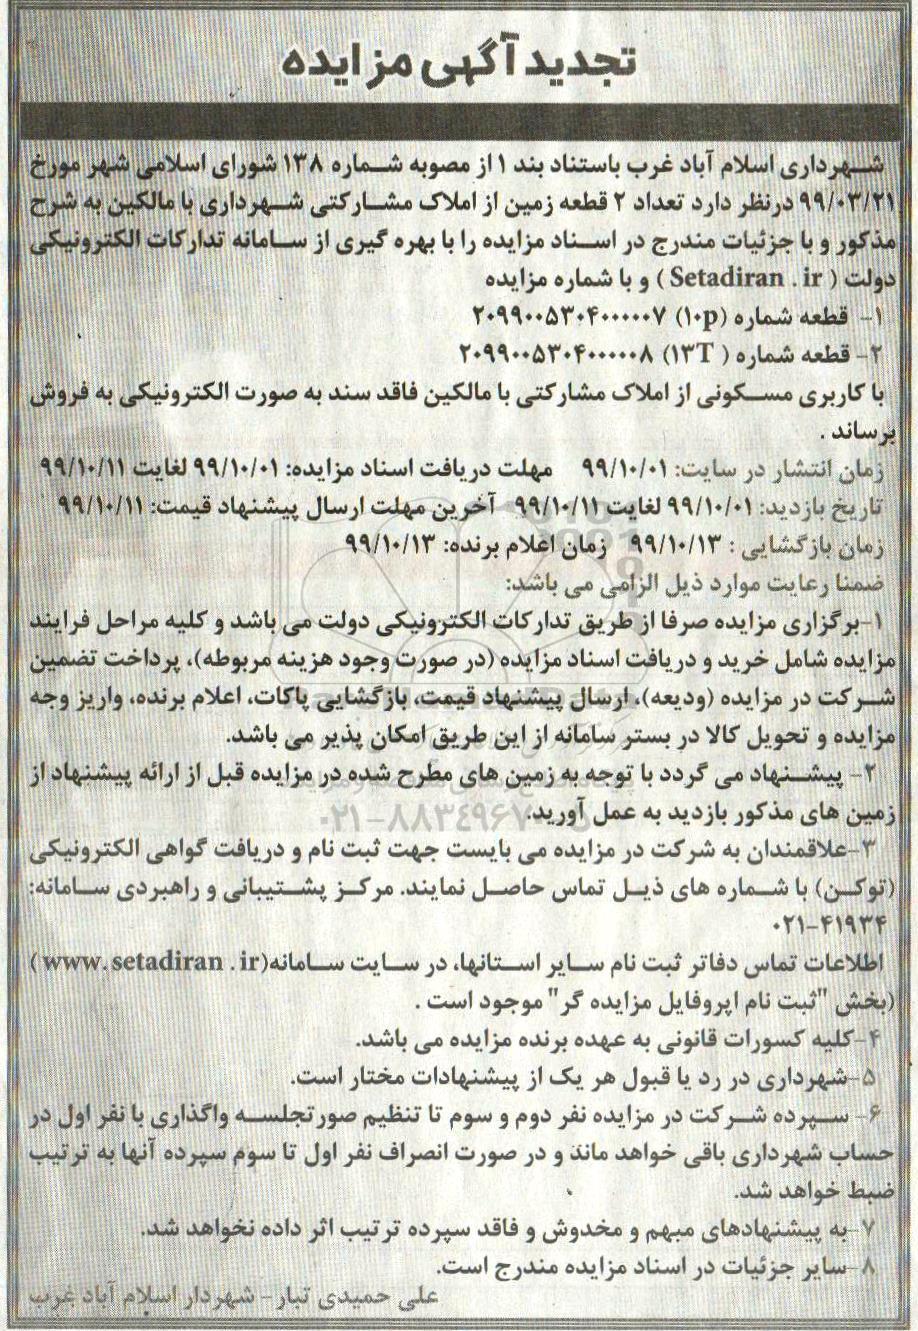 تجدید آگهی مزایده
شهرداری اسلام آباد غرب باستناد بند ۱ از مصوبه شماره ۱۳۸ شورای اسلامی شهر مورخ
۹۹/۰۳/۲۱ درنظر دارد تعداد ۲ قطعه زمین از املاک مشارکتی شهرداری با مالکین به شرح
مذکور و با جزئیات مندرج در اسناد مزایده را با بهره گیری از سامانه تدارکات الکترونیکی
دولت ( Setadiran . ir ) و با شماره مزایده
۱- قطعه شماره (۱۰p) ۲۰۹۹۰۰۵۳۰۴۰۰۰۰۰۷
۲- قطعه شماره ( ۱۳T) ۲۰۹۹۰۰۵۳۰۴۰۰۰۰۰۸
با کاربری مسکونی از املاک مشارکتی با مالکین فاقد سند به صورت الکترونیکی به فروش
برساند .
زمان انتشار در سایت: ۹۹/۱۰/۰۱ مهلت دریافت اسناد مزایده: ۹۹/۱۰/۰۱ لغایت ۹۹/۱۰/۱۱
تاریخ بازدید: ۹۹/۱۰/۰۱ لغایت ۹۹/۱۰/۱۱ آخرین مهلت ارسال پیشنهاد قیمت: ۹۹/۱۰/۱۱
زمان بازگشایی : ۹۹/۱۰/۱۳ زمان اعلام برنده: ۹۹/۱۰/۱۳
ضمنا رعایت موارد ذیل الزامی می باشد:
۱-برگزاری مزایده صرفا از طریق تدارکات الکترونیکی دولت می باشد و کلیه مراحل فرایند
مزایده شامل خرید و دریافت اسناد مزایده (در صورت وجود هزینه مربوطه)، پرداخت تضمین
شرکت در مزایده (ودیعه)، ارسال پیشنهاد قیمت، بازگشایی پاکات، اعلام برنده، واریز وجه
مزایده و تحویل کالا در بستر سامانه از این طریق امکان پذیر می باشد.
۲- پیشنهاد می گردد با توجه به زمین های مطرح شده در مزایده قبل از ارائه پیشنهاد از
زمین های مذکور بازدید به عمل آورید.
۳-علاقمندان به شرکت در مزایده می بایست جهت ثبت نام و دریافت گواهی الکترونیکی
(توکن) با شماره های ذیل تماس حاصل نمایند. مرکز پشتیبانی و راهبردی سامانه:
۰۲۱-۴۱۹۳۴
اطلاعات تماس دفاتر ثبت نام سایر استانها، در سایت سامانه(www. setadiran . ir )
(بخش "ثبت نام اپروفایل مزایده گر" موجود است .
۴-کلیه کسورات قانونی به عهده برنده مزایده می باشد.
۵-شهرداری در رد یا قبول هر یک از پیشنهادات مختار است.
۶- سپرده شرکت در مزایده نفر دوم و سوم تا تنظیم صورتجلسه واگذاری با نفر اول در
حساب شهرداری باقی خواهد ماند و در صورت انصراف نفر اول تا سوم سپرده آنها به ترتیب
ضبط خواهد شد.
۷-به پیشنهادهای مبهم و مخدوش و فاقد سپرده ترتیب اثر داده نخواهد شد.
۸-سایر جزئیات در اسناد مزایده مندرج است.
علی حمیدی تبار - شهردار اسلام آباد غرب